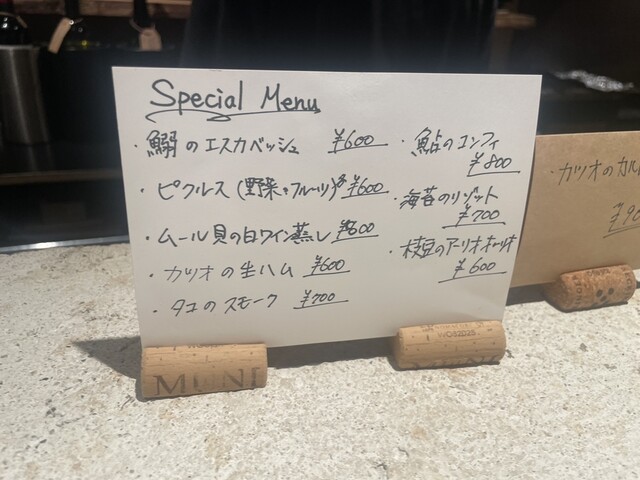 Special Menu
・鰯のエスカベッシュ ¥600
・ピクルス(野菜とフルーツ) ¥600
・ムール貝の白ワイン蒸し ¥600
・カツオの生ハム ¥600
・タコのスモーク ¥700
・鮎のコンフィ
¥800
・海苔のリゾット
¥700
・枝豆のアーリオオーリオ
¥600
・カツオのカル
MUNI